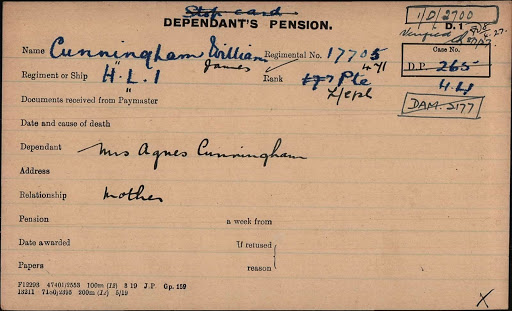 Stop card
DEPENDANT'S PENSION.
1/D/2700
D. 1
Verified
Name Cunningham William James
Regimental No. 17705
Case No.
D.P. 265
H.L.I
DAM. 5177
Regiment or Ship "H.L.I"
Rank Pte
L/Cpl
Documents received from Paymaster
Date and cause of death
Dependant Mrs Agnes Cunningham
Address
Relationship Mother
Pension a week from
Date awarded If refused
Papers reason
F12293 47401/2553 100m (12) 3 19 J.P. Gp. 159
13211 7180/2395 200m (12) 5/19
X